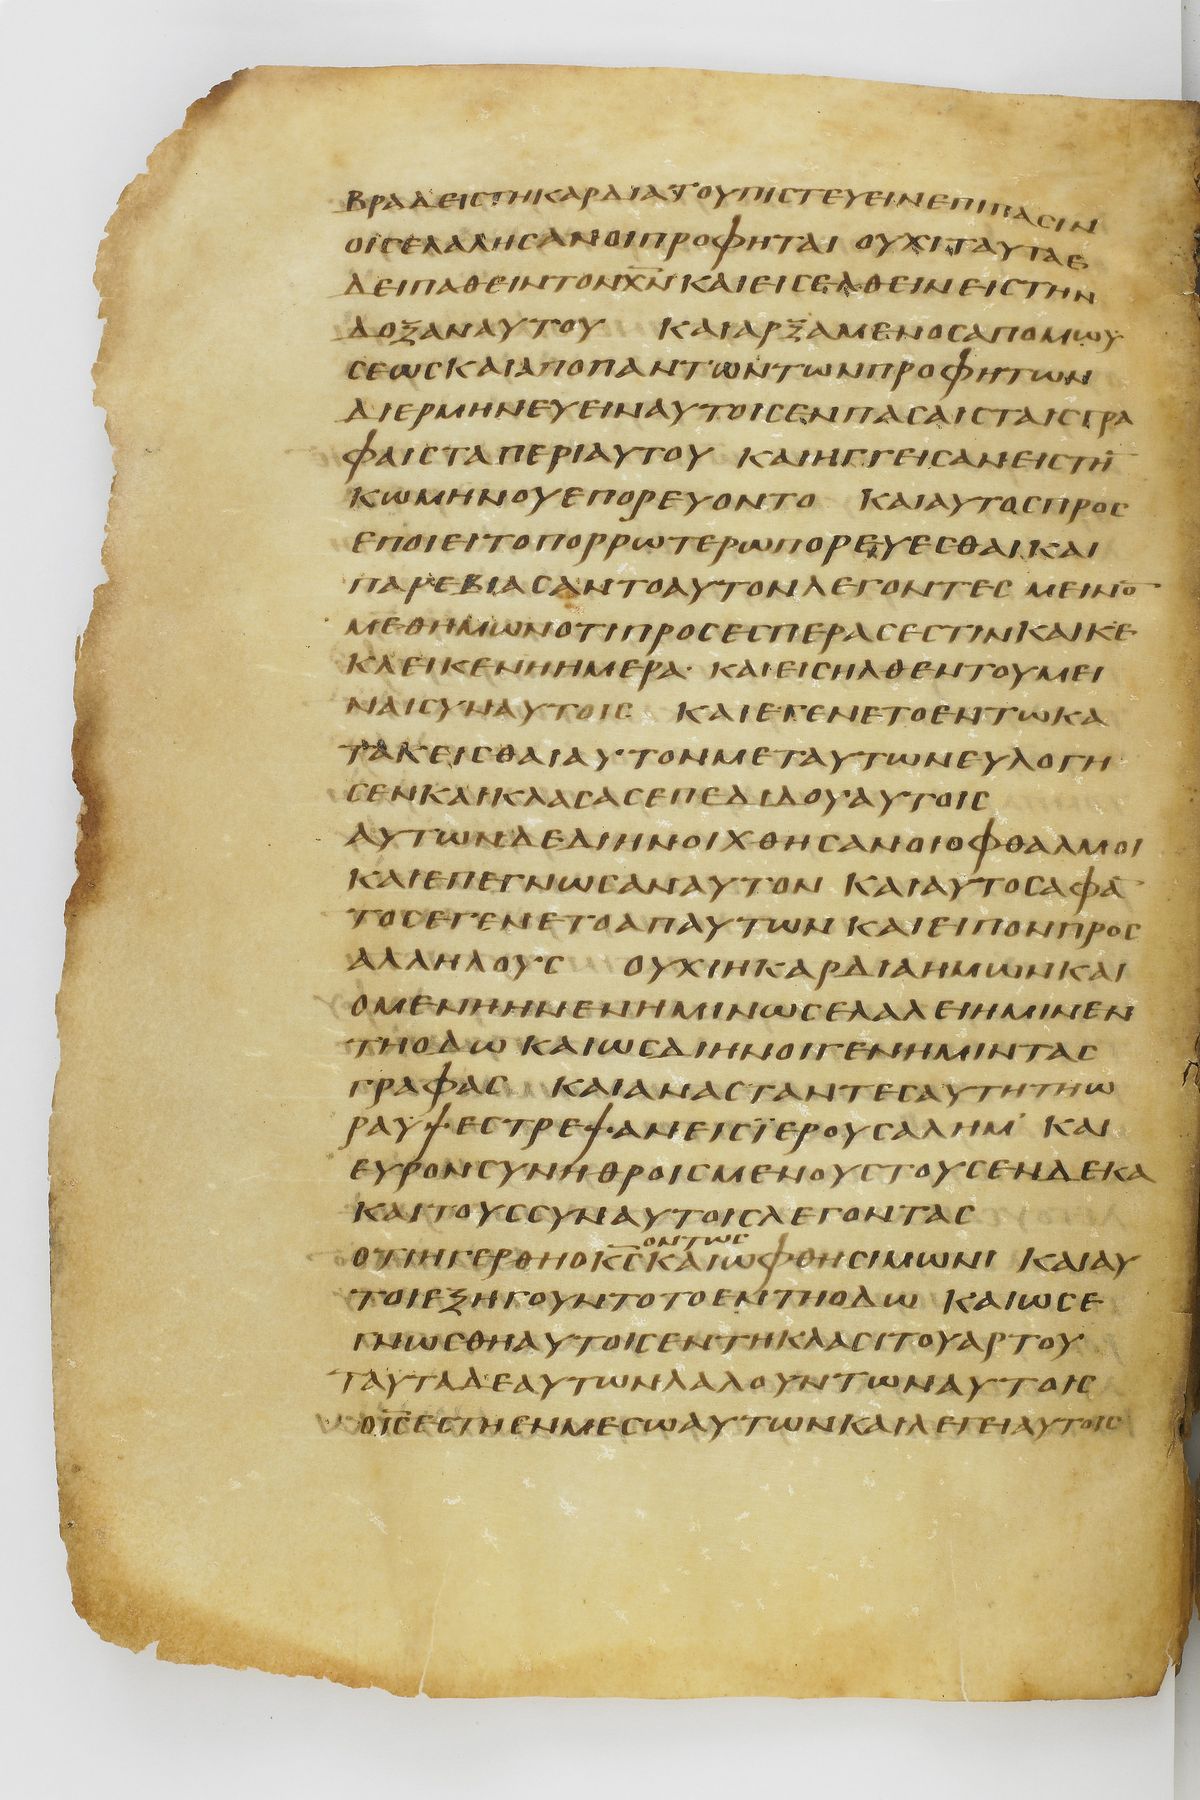 ΒΡΑΔΕΙϹΤΗΚΑΡΔΙΑΤΟΥΠΙϹΤΕΥΕΙΝΕΠΙΠΑϹΙΝ
ΟΙϹΕΛΑΛΗϹΑΝΟΙΠΡΟΦΗΤΑΙ ΟΥΧΙΤΑΥΤΑΕ
ΔΕΙΠΑΘΕΙΝΤΟΝΧ̅Ν̅ ΚΑΙΕΙϹΕΛΘΕΙΝΕΙϹΤΗΝ
ΔΟΞΑΝΑΥΤΟΥ ΚΑΙΑΡΞΑΜΕΝΟϹΑΠΟΜΩΥ
ϹΕΩϹΚΑΙΑΠΟΠΑΝΤΩΝΤΩΝΠΡΟΦΗΤΩΝ
ΔΙΕΡΜΗΝΕΥΕΙΝΑΥΤΟΙϹΕΝΠΑϹΑΙϹΤΑΙϹΓΡΑ
ΦΑΙϹΤΑΠΕΡΙΑΥΤΟΥ ΚΑΙΗΓΓΕΙϹΑΝΕΙϹΤΗ̅
ΚΩΜΗΝΟΥΕΠΟΡΕΥΟΝΤΟ ΚΑΙΑΥΤΟϹΠΡΟϹ
ΕΠΟΙΕΙΤΟΠΟΡΡΩΤΕΡΩΠΟΡΕΥΕϹΘΑΙΚΑΙ
ΠΑΡΕΒΙΑϹΑΝΤΟΑΥΤΟΝΛΕΓΟΝΤΕϹ ΜΕΙΝΟ̅
ΜΕΘΗΜΩΝΟΤΙΠΡΟϹΕϹΠΕΡΑϹΕϹΤΙΝΚΑΙΚΕ
ΚΛΕΙΚΕΝΗΗΜΕΡΑ· ΚΑΙΕΙϹΗΛΘΕΝΤΟΥΜΕΙ
ΝΑΙϹΥΝΑΥΤΟΙϹ ΚΑΙΕΓΕΝΕΤΟΕΝΤΩΚΑ
ΤΑΚΕΙϹΘΑΙΑΥΤΟΝΜΕΤΑΥΤΩΝΕΥΛΟΓΗ
ϹΕΝΚΑΙΚΛΑϹΑϹΕΠΕΔΙΔΟΥΑΥΤΟΙϹ
ΑΥΤΩΝΔΕΔΙΗΝΟΙΧΘΗϹΑΝΟΙΟΦΘΑΛΜΟΙ
ΚΑΙΕΠΕΓΝΩϹΑΝΑΥΤΟΝ ΚΑΙΑΥΤΟϹΑΦΑ̅
ΤΟϹΕΓΕΝΕΤΟΑΠΑΥΤΩΝ ΚΑΙΕΙΠΟΝΠΡΟϹ
ΑΛΛΗΛΟΥϹ ΟΥΧΙΗΚΑΡΔΙΑΗΜΩΝΚΑΙ
ΟΜΕΝΗΗΝΕΝΗΜΙΝΩϹΕΛΑΛΕΙΗΜΙΝΕΝ
ΤΗΟΔΩ ΚΑΙΩϹΔΙΗΝΟΙΓΕΝΗΜΙΝΤΑϹ
ΓΡΑΦΑϹ ΚΑΙΑΝΑϹΤΑΝΤΕϹΑΥΤΗΤΗΩ
ΡΑΥΠΕϹΤΡΕΨΑΝΕΙϹΪΕΡΟΥϹΑΛΗΜ ΚΑΙ
ΕΥΡΟΝϹΥΝΗΘΡΟΙϹΜΕΝΟΥϹΤΟΥϹΕΝΔΕΚΑ
ΚΑΙΤΟΥϹϹΥΝΑΥΤΟΙϹΛΕΓΟΝΤΑϹ
ΟΝΤΩϹ
ΟΤΙΗΓΕΡΘΗΟΚ̅Ϲ̅ΚΑΙΩΦΘΗϹΙΜΩΝΙ ΚΑΙΑΥ
ΤΟΙΕΞΗΓΟΥΝΤΟΤΟΕΝΤΗΟΔΩ ΚΑΙΩϹΕ
ΓΝΩϹΘΗΑΥΤΟΙϹΕΝΤΗΚΛΑϹΙΤΟΥΑΡΤΟΥ
ΤΑΥΤΑΔΕΑΥΤΩΝΛΑΛΟΥΝΤΩΝΑΥΤΟΙϹ
ΟΙ̅Ϲ̅ΕϹΤΗΕΝΜΕϹΩΑΥΤΩΝΚΑΙΛΕΓΕΙΑΥΤΟΙϹ